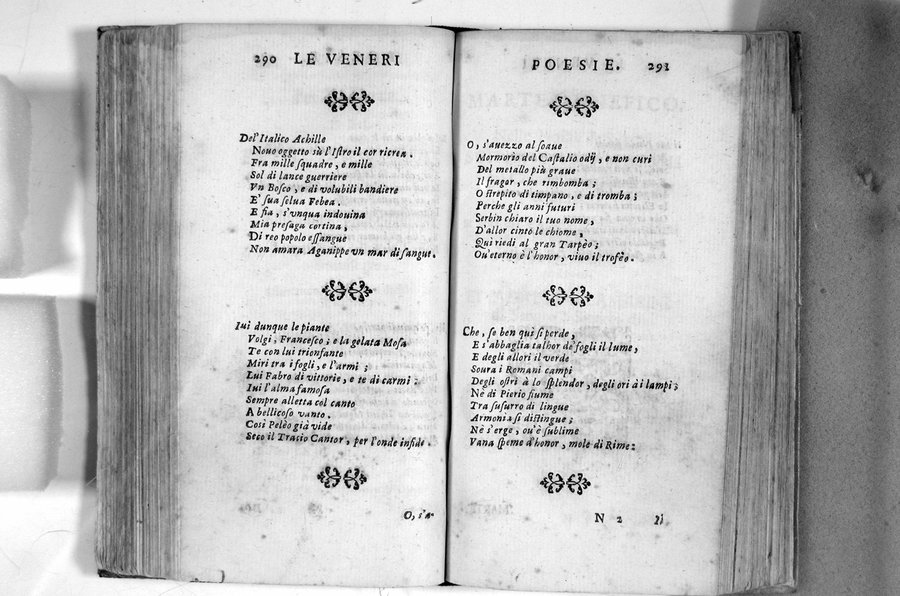 290 LE VENERI
Del'Italico Achille
Nouo oggetto sù l'Istro il cor ricrea.
Fra mille squadre, e mille
Sol di lance guerriere
Vn Bosco, e di volubili bandiere
E' sua selua Febea.
E fia, s'vnqua indouina
Mia presaga cortina,
Di reo popolo essangue
Non amara Aganippe vn mar di sangue.
Iui dunque le piante
Volgi, Francesco; e la gelata Mosa
Te con lui trionfante
Miri tra i fogli, e l'armi;
Lui Fabro di vittorie, e te di carmi:
Iui l'alma famosa
Sempre alletta col canto
A bellicoso vanto.
Così Pelèo già vide
Seco il Tracio Cantor, per l'onde infide.
O, s'a-
POESIE. 291
O, s'auezzo al soaue
Mormorio del Castalio odij, e non curi
Del metallo più graue
Il fragor, che rimbomba;
O strepito di timpano, e di tromba;
Perche gli anni futuri
Serbin chiaro il tuo nome,
D'allor cinto le chiome,
Qui riedi al gran Tarpèo;
Ou'eterno è l'honor, viuo il trofèo.
Che, se ben quì si perde,
E s'abbaglia talhor de' fogli il lume,
E degli allori il verde
Soura i Romani campi
Degli ostri à lo splendor, degli ori ài lampi;
Nè di Pierio fiume
Tra susurro di lingue
Armonia si distingue;
Nè s'erge, ou'è sublime
Vana speme d'honor, mole di Rime:
N 2